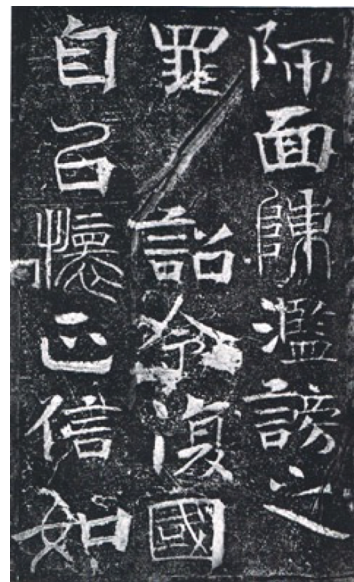 師面陳濫謗之
罪詔令復國
自㠯懷正信如